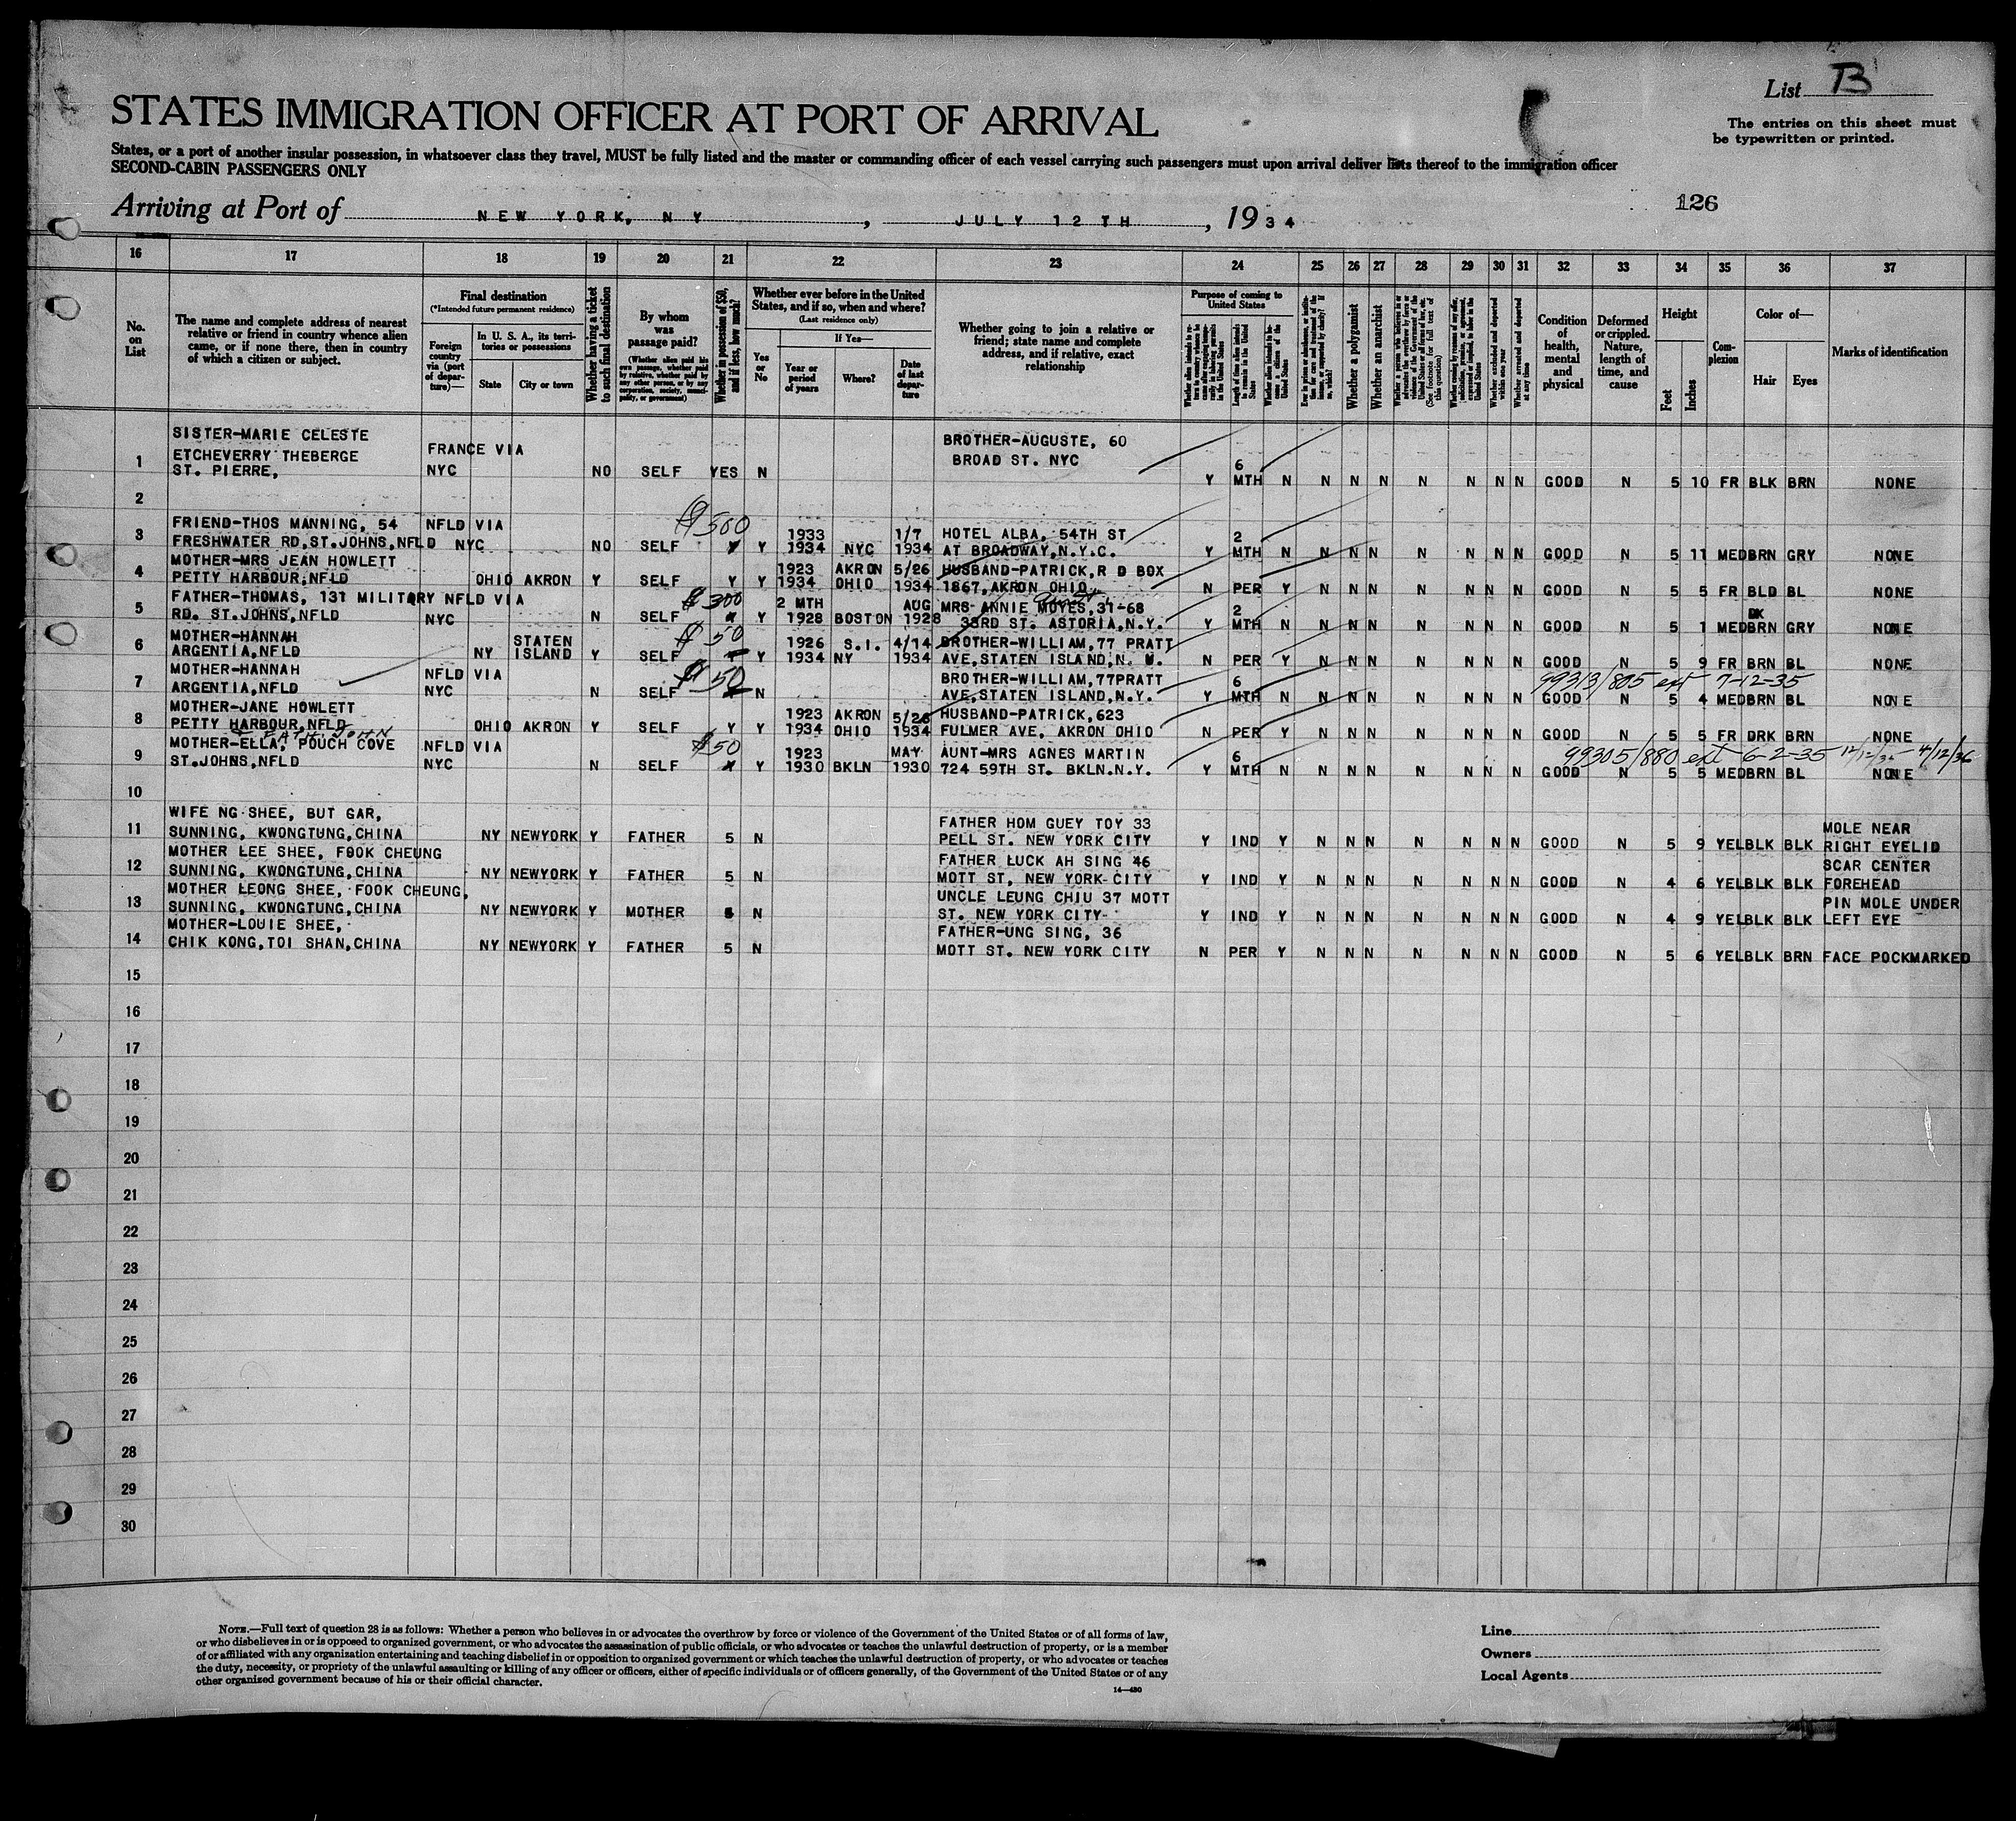 List B
STATES IMMIGRATION OFFICER AT PORT OF ARRIVAL
The entries on this sheet must
be typewritten or printed.
States, or a port of another insular possession, in whatsoever class they travel, MUST be fully listed and the master or commanding officer of each vessel carrying such passengers must upon arrival deliver lists thereof to the immigration officer
SECOND-CABIN PASSENGERS ONLY
Arriving at Port of NEW YORK, NY, JULY 12TH, 1934
126
16 17 18 19 20 21 22 23 24 25 26 27 28 29 30 31 32 33 34 35 36 37
No. on List
The name and complete address of nearest relative or friend in country whence alien came, or if none there, then in country of which a citizen or subject.
Final destination
(*Intended future permanent residence)
Foreign country via (port of departure)—
In U. S. A., its territories or possessions
State
City or town
Whether having a ticket to such final destination
By whom was passage paid?
(Whether alien paid his own passage, whether paid by relative, whether paid by any other person, or by any corporation, society, municipality, or government)
Whether in possession of $50, and if less, how much?
Whether ever before in the United States, and if so, when and where?
(Last residence only)
Yes or No
If Yes—
Year or period of years
Where?
Date of last departure
Whether going to join a relative or friend; state name and complete address, and if relative, exact relationship
Purpose of coming to United States
Length of time alien intends to remain in the United States
Whether alien intends to become a citizen of the United States
Whether a polygamist
Whether an anarchist
(See footnote for full text of this question)
Whether excluded and deported within one year
Whether arrested and deported at any time
Condition of health, mental and physical
Deformed or crippled. Nature, length of time, and cause
Height
Feet
Inches
Complexion
Color of—
Hair
Eyes
Marks of identification
SISTER-MARIE CELESTE BROTHER-AUGUSTE, 60
ETCHEVERRY THEBERGE FRANCE VIA BROAD ST. NYC
1 ST. PIERRE, NYC NO SELF YES N Y 6 MTH N N N N N N N N GOOD N 5 10 FR BLK BRN NONE
2
FRIEND-THOS MANNING, 54 NFLD VIA $500 1933 1/7 HOTEL ALBA, 54TH ST
3 FRESHWATER RD, ST.JOHNS, NFLD NYC NO SELF Y Y 1934 NYC 1934 AT BROADWAY, N.Y.C. Y 2 MTH N N N N N N N N GOOD N 5 11 MED BRN GRY NONE
MOTHER-MRS JEAN HOWLETT 1923 AKRON 5/26 HUSBAND-PATRICK, R D BOX
4 PETTY HARBOUR, NFLD OHIO AKRON Y SELF Y Y 1934 OHIO 1934 1867, AKRON OHIO N PER Y N N N N N N N GOOD N 5 5 FR BLD BL NONE
FATHER-THOMAS, 131 MILITARY NFLD VIA $300 2 MTH AUG MRS ANNIE MOYES, 31-68 Aunt
5 RD. ST.JOHNS, NFLD NYC N SELF Y 1928 BOSTON 1928 33RD ST. ASTORIA, N.Y. Y 2 MTH N N N N N N N N GOOD N 5 1 MED DK BRN GRY NONE
MOTHER-HANNAH STATEN $50 1926 S.I. 4/14 BROTHER-WILLIAM, 77 PRATT
6 ARGENTIA, NFLD NY ISLAND Y SELF Y 1934 NY 1934 AVE, STATEN ISLAND, N. Y. N PER Y N N N N N N N GOOD N 5 9 FR BRN BL NONE
MOTHER-HANNAH NFLD VIA $50 BROTHER-WILLIAM, 77PRATT 99313/805 ext 7-12-35
7 ARGENTIA, NFLD NYC N SELF N AVE, STATEN ISLAND, N.Y. Y 6 MTH N N N N N N N N GOOD N 5 4 MED BRN BL NONE
MOTHER-JANE HOWLETT 1923 AKRON 5/26 HUSBAND-PATRICK, 623
8 PETTY HARBOUR, NFLD OHIO AKRON Y SELF Y Y 1934 OHIO 1934 FULMER AVE, AKRON OHIO N PER Y N N N N N N N GOOD N 5 5 FR DRK BRN NONE
& FATH. JOHN
MOTHER-ELLA, POUCH COVE NFLD VIA $50 1923 MAY AUNT-MRS AGNES MARTIN 99305/880 ext 6-2-35 4/12/36
9 ST.JOHNS, NFLD NYC N SELF Y 1930 BKLN 1930 724 59TH ST. BKLN.N.Y. Y 6 MTH N N N N N N N N GOOD N 5 5 MED BRN BL NONE
10
WIFE NG SHEE, BUT GAR, FATHER HOM GUEY TOY 33 MOLE NEAR
11 SUNNING, KWONGTUNG, CHINA NY NEWYORK Y FATHER 5 N PELL ST. NEW YORK CITY Y IND Y N N N N N N N GOOD N 5 9 YEL BLK BLK RIGHT EYELID
MOTHER LEE SHEE, FOOK CHEUNG FATHER LUCK AH SING 46 SCAR CENTER
12 SUNNING, KWONGTUNG, CHINA NY NEWYORK Y FATHER 5 N MOTT ST, NEW YORK CITY Y IND Y N N N N N N N GOOD N 4 6 YEL BLK BLK FOREHEAD
MOTHER LEONG SHEE, FOOK CHEUNG, UNCLE LEUNG CHIU 37 MOTT PIN MOLE UNDER
13 SUNNING, KWONGTUNG, CHINA NY NEWYORK Y MOTHER 5 N ST. NEW YORK CITY Y IND Y N N N N N N N GOOD N 4 9 YEL BLK BLK LEFT EYE
MOTHER-LOUIE SHEE, FATHER-UNG SING, 36
14 CHIK KONG, TOI SHAN, CHINA NY NEWYORK Y FATHER 5 N MOTT ST. NEW YORK CITY N PER Y N N N N N N N GOOD N 5 6 YEL BLK BRN FACE POCKMARKED
15
16
17
18
19
20
21
22
23
24
25
26
27
28
29
30
NOTE.—Full text of question 28 is as follows: Whether a person who believes in or advocates the overthrow by force or violence of the Government of the United States or of all forms of law,
or who disbelieves in or is opposed to organized government, or who advocates the assassination of public officials, or who advocates or teaches the unlawful destruction of property, or is a member
of or affiliated with any organization entertaining and teaching disbelief in or opposition to organized government or which teaches the unlawful destruction of property, or who advocates or teaches
the duty, necessity, or propriety of the unlawful assaulting or killing of any officer or officers, either of specific individuals or of officers generally, of the Government of the United States or of any
other organized government because of his or their official character.
14—480
Line
Owners
Local Agents